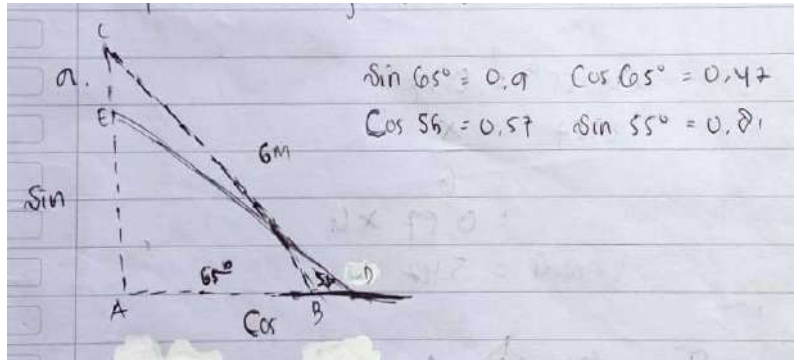 C
a. Sin 65° = 0,9 Cos 65° = 0,42
E Cos 55 = 0,57 Sin 55° = 0,81
6m
Sin
65° 55 D
A Cos B